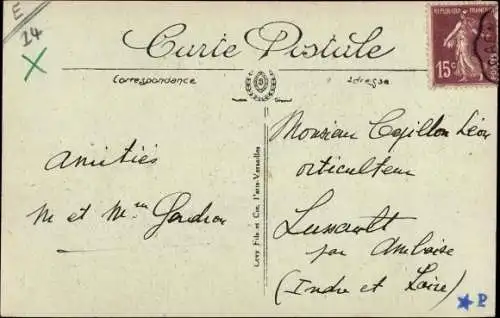 E
24
Carte Postale
Correspondance
Adresse
RÉPUBLIQUE FRANÇAISE
15c
Amitiés
M et Mme Gendron
Levy Fils et Cie, Paris-Versailles
Monsieur Copillon Léon
orticulteur
Lussault
par Amboise
(Indre et Loire)
P